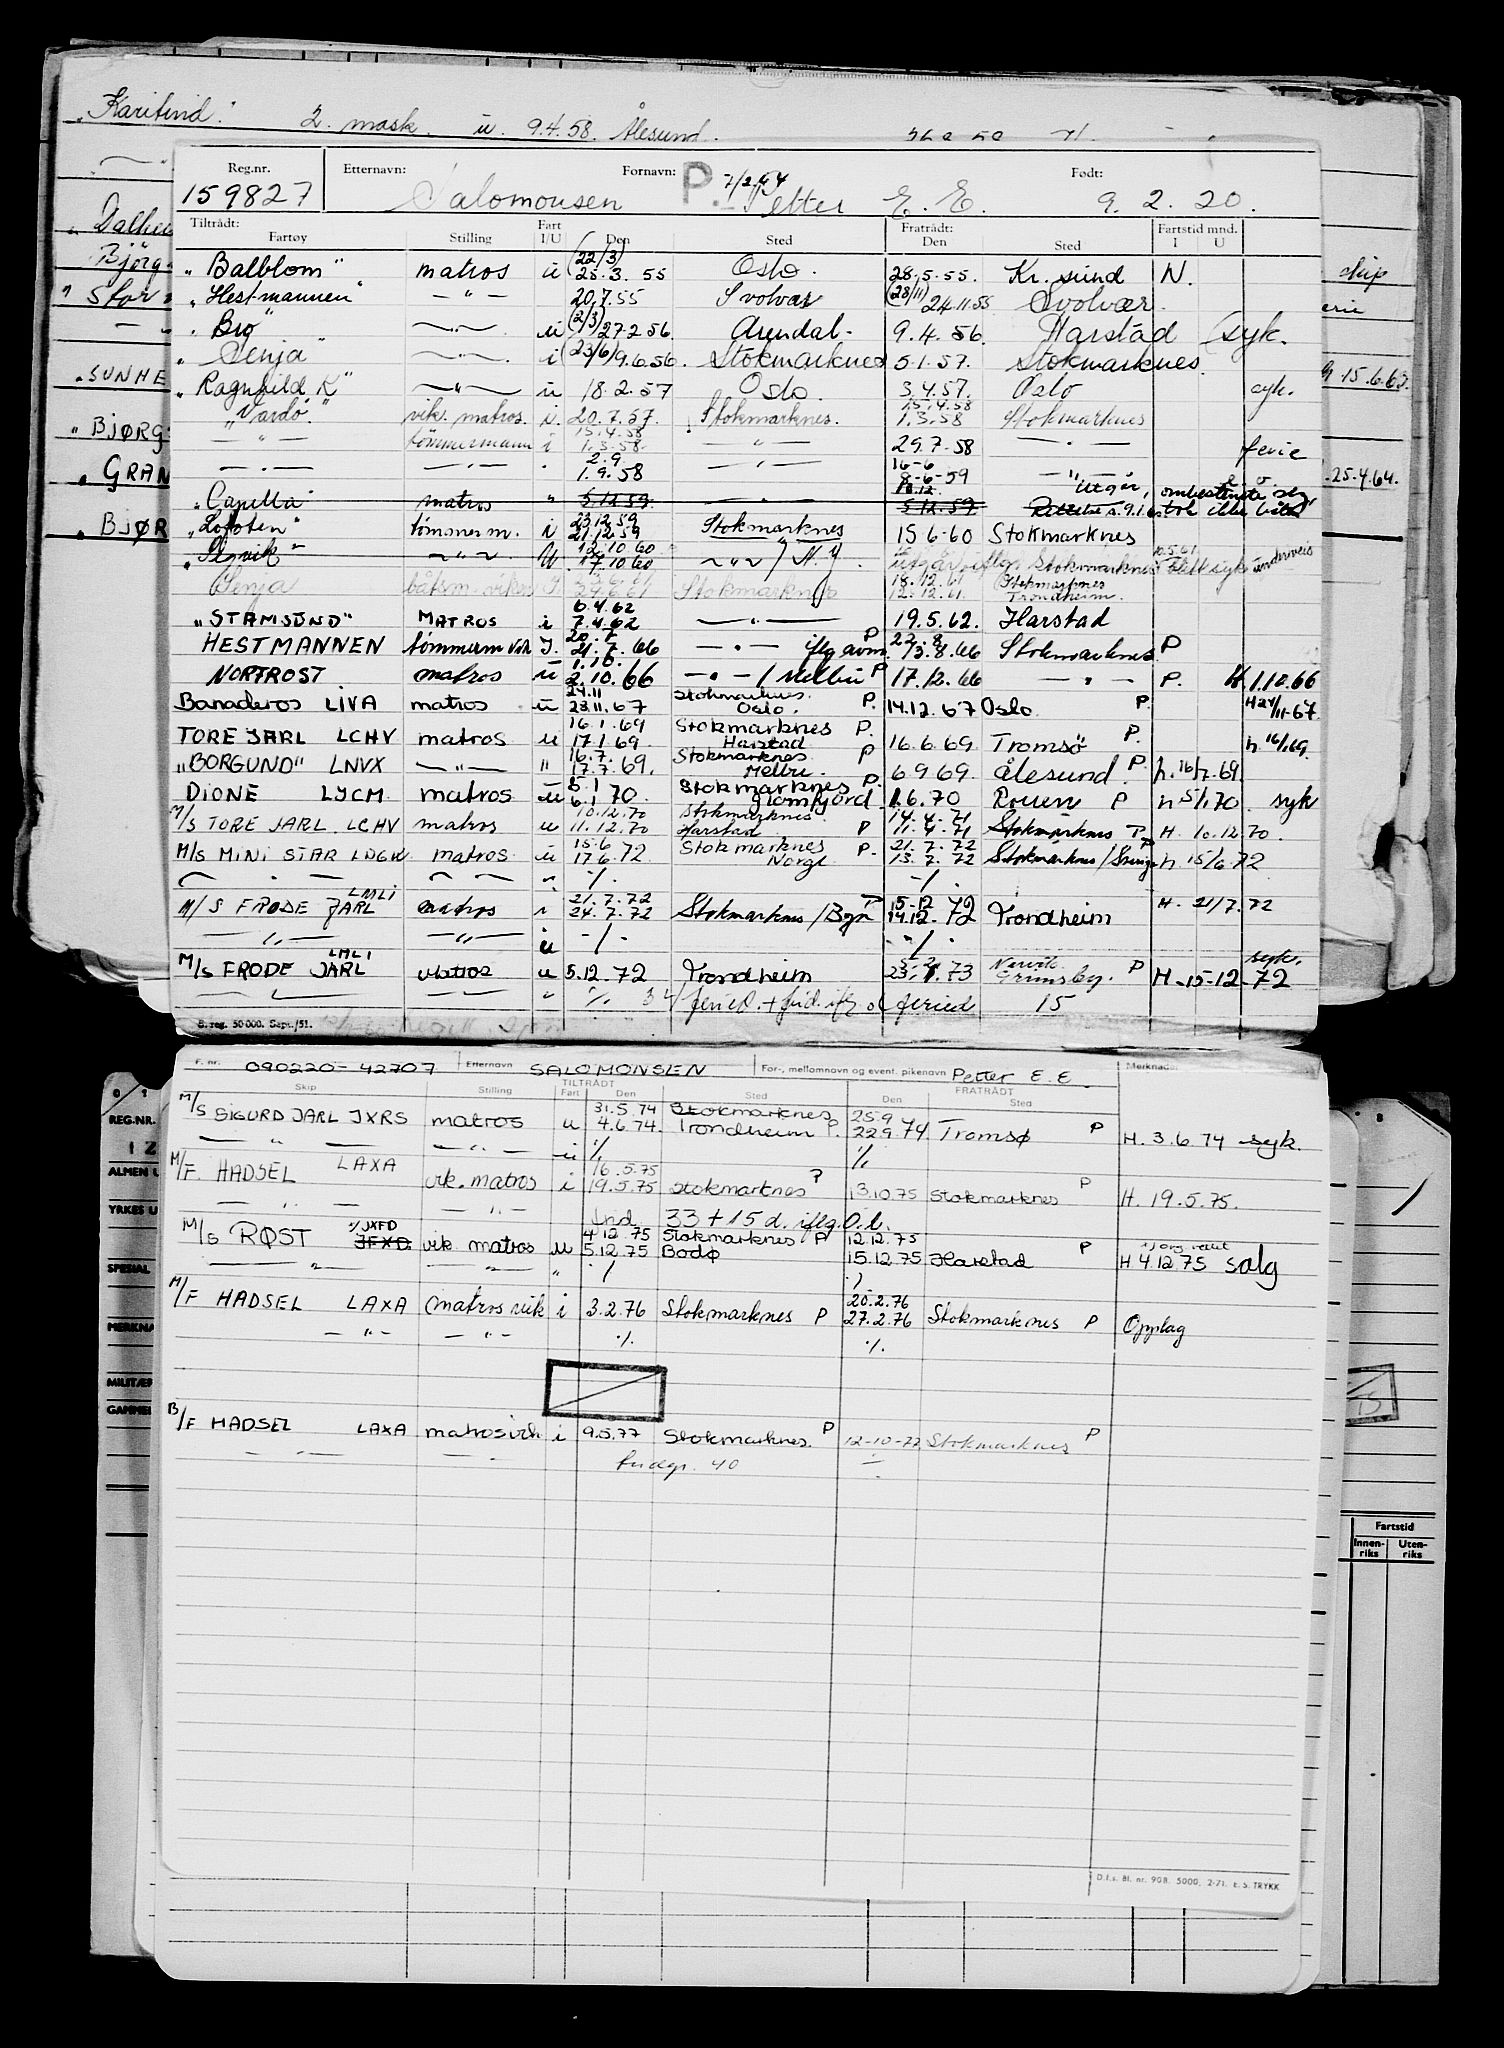 "Karitind." 2. mask. u. 9.4.58. Ålesund.
Reg.nr. Etternavn: Fornavn: P. 7/2.44 Født:
159827 Salomonsen Petter E. E. 9. 2. 20.
Tiltrådt: Fart Fratrådt: Fartstid mnd.
Fartøy Stilling I/U Den Sted Den Sted I U
"Balblom" matros u (22/3) 25.3.55 Oslo. 28.5.55. Kr.sund N.
"Hestmannen" — " — 20.7.55 Svolvær (28/11) 24.11.55 Svolvær.
"Bro" — " — u (2/3) 27.2.56 Arendal. 9.4.56. Harstad (syk.
"Senja" — " — i (23/6) 9.6.56. Stokmarknes 5.1.57. Stokmarknes.
"Ragnhild K" — " — u 18.2.57 Oslo. 3.4.57. Oslo syk.
"Vardö". vik. matros. i. 20.7.57. Stokmarknes. 15.4.58 1.3.58 Stokmarknes
— " — tömmermann i 15.4.58 1.3.58. — " — 29.7.58 — " — ferie
— " — — " — 2.9 1.9.58 — " — 16-6 8-6-59 — " —
"Capella" matros " 5.12.59. — " — 5.12.59 Utgår, ombestemte seg
"Lofoten" tömmerm. i 23.12.59 21.12.59 Stokmarknes 15.6.60 Stokmarknes
— " — U 12.10.60 7.10.60 — " — / N.Y. Stokmarknes blitt syk underveis
Senja båtsm. vikar I. 24.6.61 Stokmarknes 18.12.61 12.12.61. Stokmarknes Trondheim.
"STAMSUND" MATROS i 6.4.62 7.4.62 — " — 19.5.62. Harstad
HESTMANNEN tömmerm vik I. 20.7. 21.7.66 — " — iflg avm. P 22.8. 13.8.66 Stokmarknes P
NORFROST matros u 1.10. 2.10.66 — " — / Melbu P 17.12.66 — " — P. H. 1.10.66
Banaderos LIVA matros u 24.11 23.11.67 Stokmarknes. Oslo. P. 14.12.67 Oslo. P. H 24/11-67.
TORE JARL LCHV matros u 16.1.69 17.1.69 Stokmarknes Harstad P. 16.6.69 Tromsö P. h. 16/1.69
"BORGUND" LNVX — " — " 16.7. 17.7.69. Stokmarknes Melbu. P 6.9.69. Ålesund. P. h. 16/7.69.
DIONE LJCM matros u 5.1 6.1.70. Stokmarknes Glomfjord P. 1.6.70 Rouen P h 5/1.70. syk
M/S TORE JARL LCHV matros u 10.12.70 11.12.70 Stokmarknes. Harstad P 14.4.71 11.4.71 Stokmarknes P H. 10.12.70.
M/S MINI STAR LDGK matros u 15.6 17.6.72 Stokmarknes Norge P. 21.7.72 13.7.72 Stokmarknes / P h 15/6.72
— " — — " — " -/. -/.
M/S FRODE JARL LMLI matros i 21.7.72 24.7.72 Stokmarknes / Bgn P 15-12 14.12.72 Trondheim H. 21/7.72
— " — — " — u -/- -"/-
M/S FRODE JARL LMLI matros u 5.12.72 Trondheim 5.2. 23.1.73 Narvik Grimsby. P H.-15-12-72 syk.
— " — — " — " -/. 34 feried. + frid. iflg. ol feried 15
S. reg. 50 000. Sept./51.
F. nr. 090220-42707 Etternavn SALOMONSEN For-, mellomnavn og event. pikenavn Petter E. E. Merknader
TILTRÅDT FRATRÅDT
Skip Stilling Fart Den Sted Den Sted
M/S SIGURD JARL JXRS matros u 31.5.74 4.6.74. Stokmarknes Trondheim P. 25.9 22.9.74 Tromsø P H. 3.6.74 syk.
— " — — " — u -/. -/.
M/F. HADSEL LAXA vik. matros i 16.5.75 19.5.75 Stokmarknes P 13.10.75 Stokmarknes P H. 19.5.75.
— " — — " — Lnd 33 + 15 d. iflg. O.l.
M/S RØST JXFD JFXD. vik. matros u 4.12.75 5.12.75 Stokmarknes P Bodø 12.12.75 15.12.75 Harstad P H 4.12.75 salg
— " — — " — " -/. -/.
M/F HADSEL LAXA (matros vik i 3.2.76 Stokmarknes P 20.2.76 27.2.76 Stokmarknes P Opplag
— " — — " — -/. -/.
B/F HADSEL LAXA matros vik i 9.5.77 Stokmarknes. P 12-10-77 Stokmarknes P
— " — — " — fridgr. 40 — " —
D.f.s. Bl. nr. 90B. 5000, 2-71. E. S. TRYKK
"Dalhei
Björg
" Stor
"SUNHE
"BJØRG
"GRAN
"BJØR
skip
erie
15.6.63.
-25.4.64.
REG.NR.
ALMEN
YRKES U
SPESIAL
MERKNA
MILITÆR
GAMMEL
Fartstid
Innen-riks Uten-riks